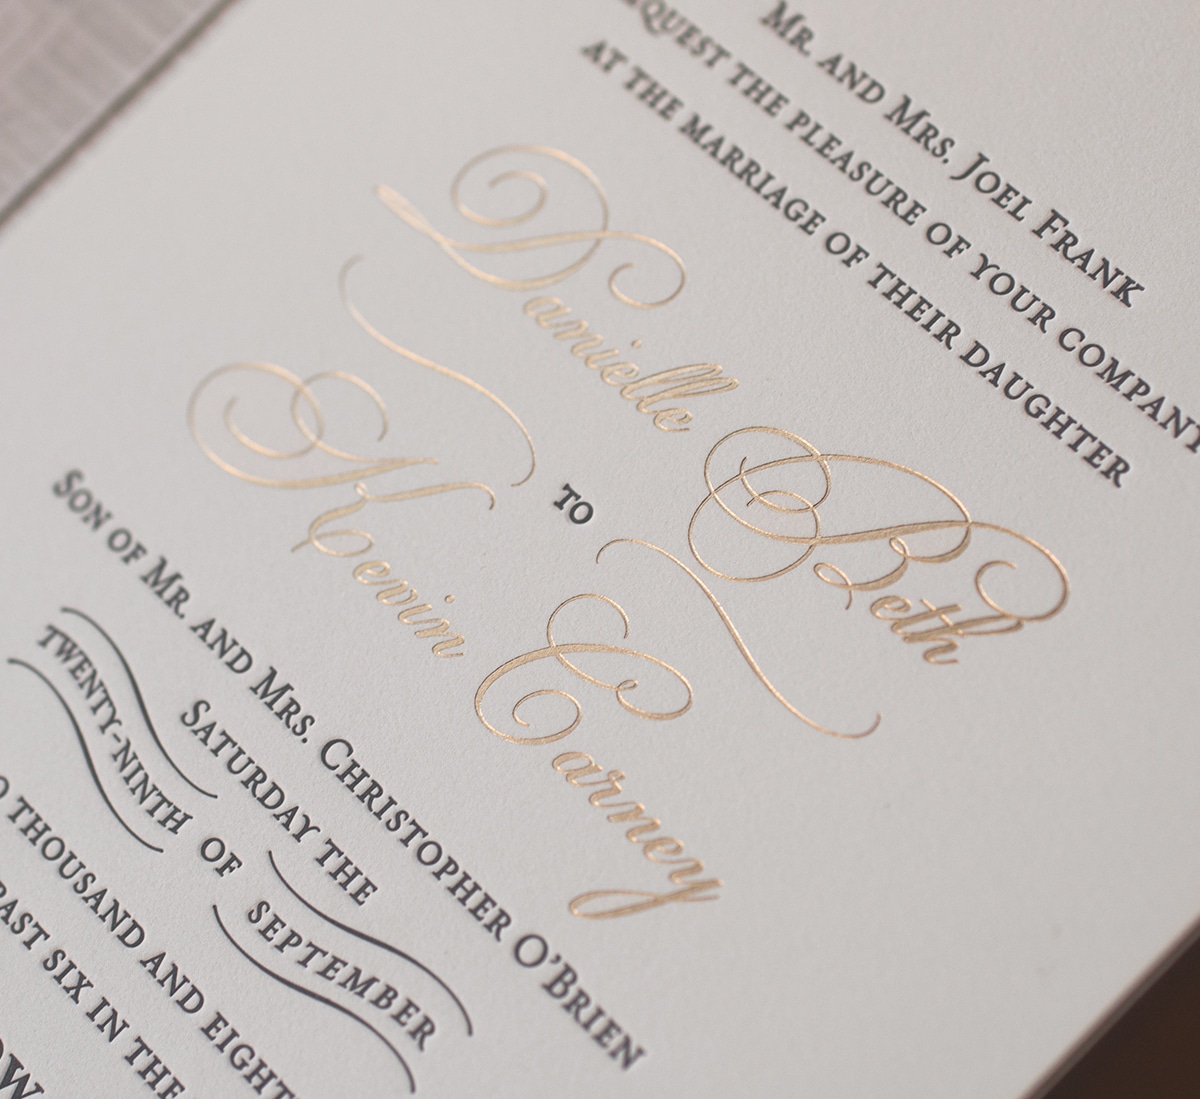 Mr. and Mrs. Joel Frank
request the pleasure of your company
at the marriage of their daughter
Danielle Beth
to
Kevin Carney
Son of Mr. and Mrs. Christopher O'Brien
Saturday the
twenty-ninth of September
thousand and eight
past six in the